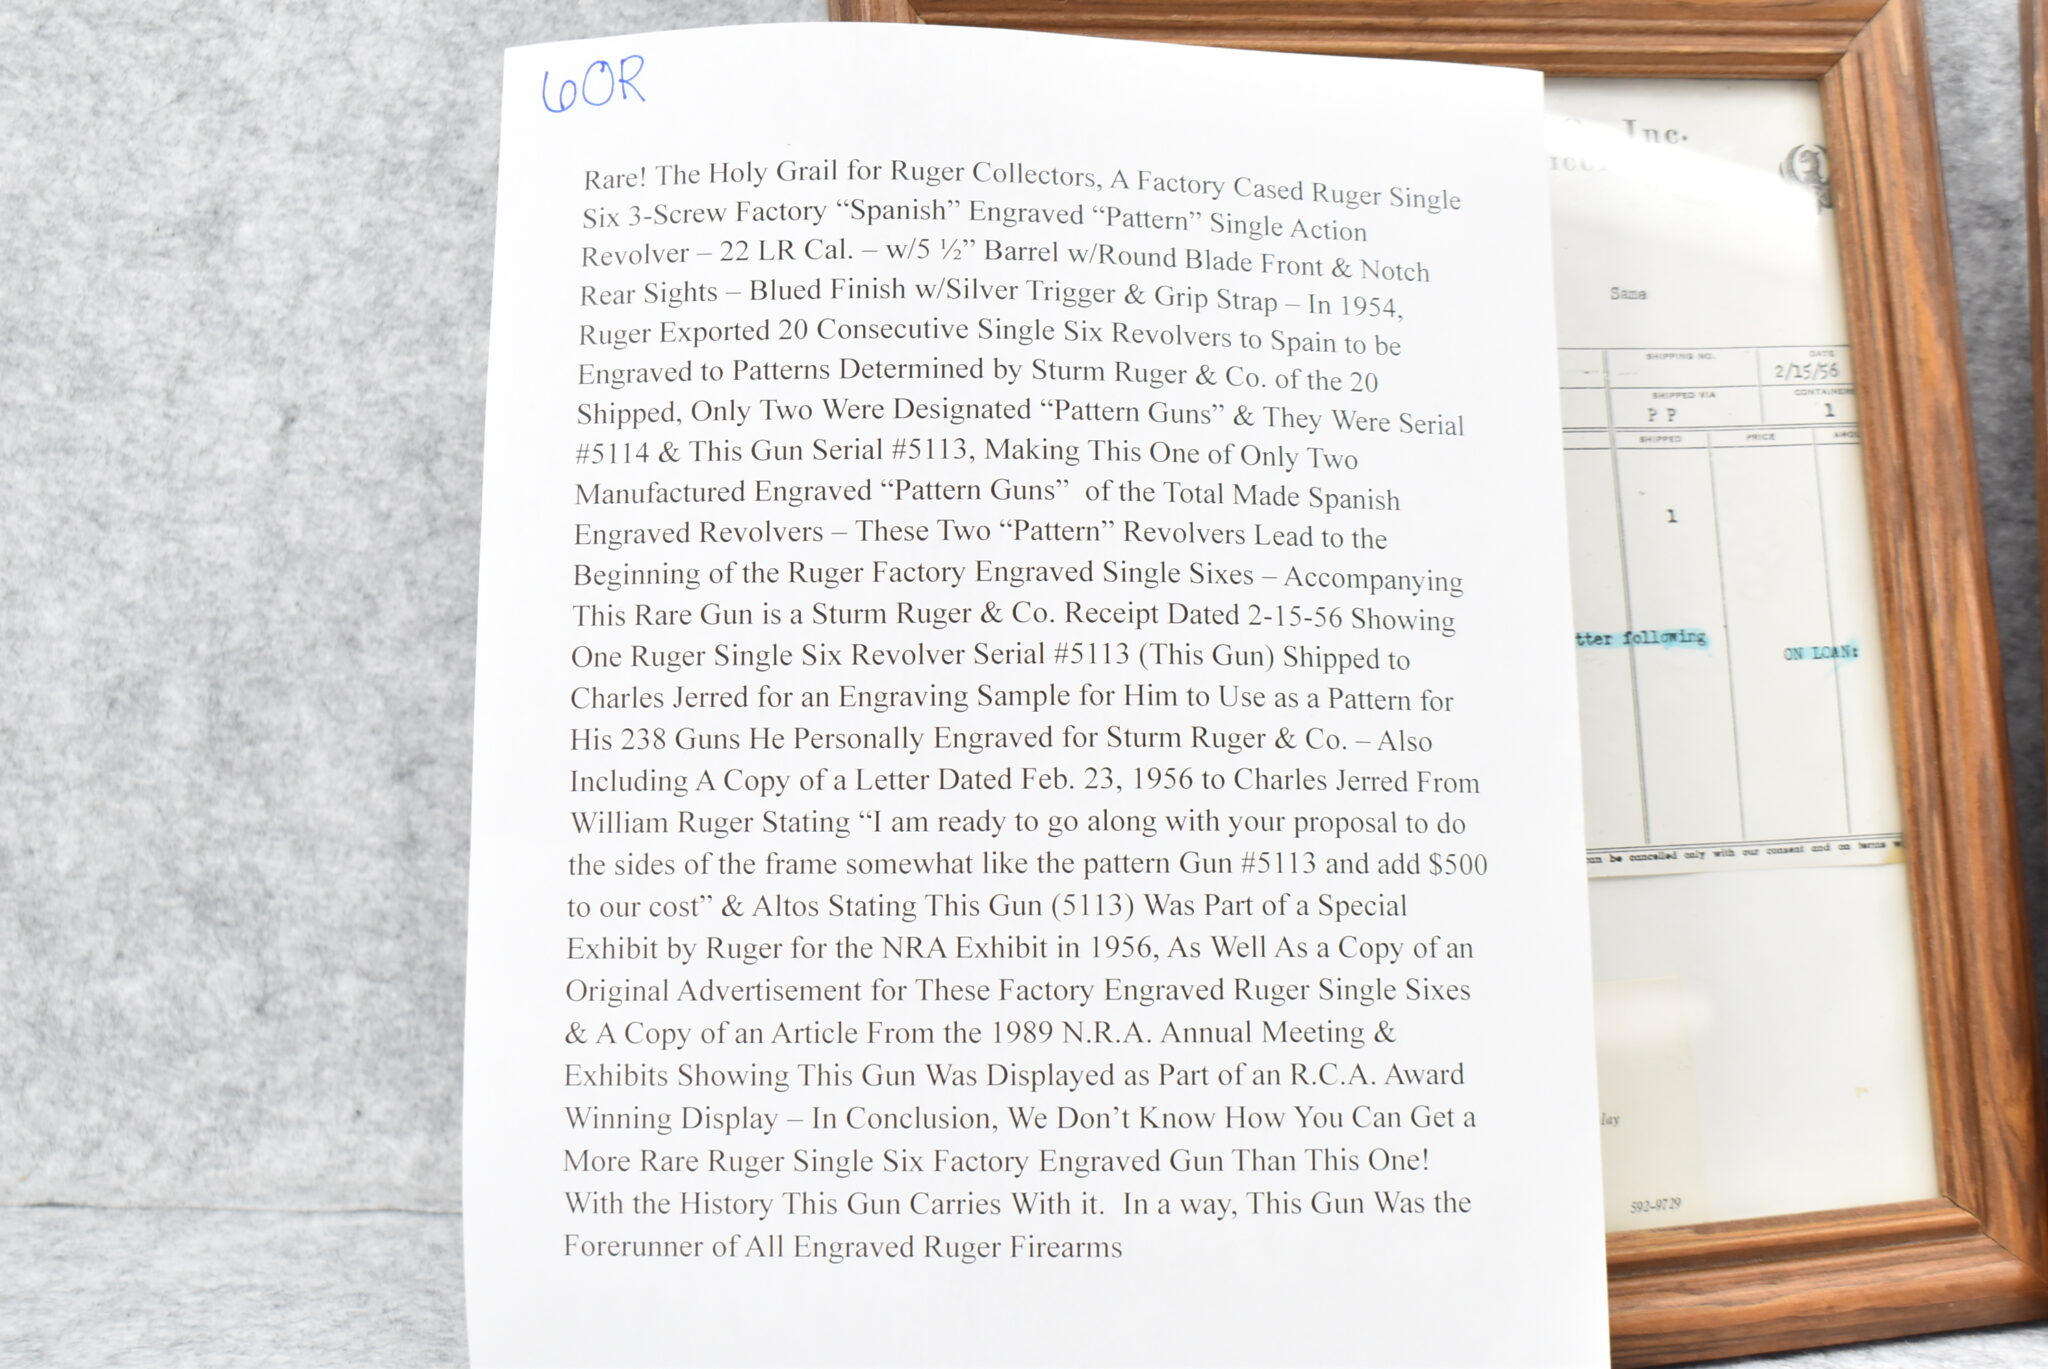 6OR
Rare! The Holy Grail for Ruger Collectors, A Factory Cased Ruger Single
Six 3-Screw Factory “Spanish” Engraved “Pattern” Single Action
Revolver – 22 LR Cal. – w/5 ½” Barrel w/Round Blade Front & Notch
Rear Sights – Blued Finish w/Silver Trigger & Grip Strap – In 1954,
Ruger Exported 20 Consecutive Single Six Revolvers to Spain to be
Engraved to Patterns Determined by Sturm Ruger & Co. of the 20
Shipped, Only Two Were Designated “Pattern Guns” & They Were Serial
#5114 & This Gun Serial #5113, Making This One of Only Two
Manufactured Engraved “Pattern Guns”  of the Total Made Spanish
Engraved Revolvers – These Two “Pattern” Revolvers Lead to the
Beginning of the Ruger Factory Engraved Single Sixes – Accompanying
This Rare Gun is a Sturm Ruger & Co. Receipt Dated 2-15-56 Showing
One Ruger Single Six Revolver Serial #5113 (This Gun) Shipped to
Charles Jerred for an Engraving Sample for Him to Use as a Pattern for
His 238 Guns He Personally Engraved for Sturm Ruger & Co. – Also
Including A Copy of a Letter Dated Feb. 23, 1956 to Charles Jerred From
William Ruger Stating “I am ready to go along with your proposal to do
the sides of the frame somewhat like the pattern Gun #5113 and add $500
to our cost” & Altos Stating This Gun (5113) Was Part of a Special
Exhibit by Ruger for the NRA Exhibit in 1956, As Well As a Copy of an
Original Advertisement for These Factory Engraved Ruger Single Sixes
& A Copy of an Article From the 1989 N.R.A. Annual Meeting &
Exhibits Showing This Gun Was Displayed as Part of an R.C.A. Award
Winning Display – In Conclusion, We Don’t Know How You Can Get a
More Rare Ruger Single Six Factory Engraved Gun Than This One!
With the History This Gun Carries With it.  In a way, This Gun Was the
Forerunner of All Engraved Ruger Firearms
Inc.
Same
SHIPPING NO. DATE
2/15/56
SHIPPED VIA CONTAINERS
P P 1
SHIPPED PRICE
1
tter following ON LOAN:
can be cancelled only with our consent and on terms
lay
592-9729